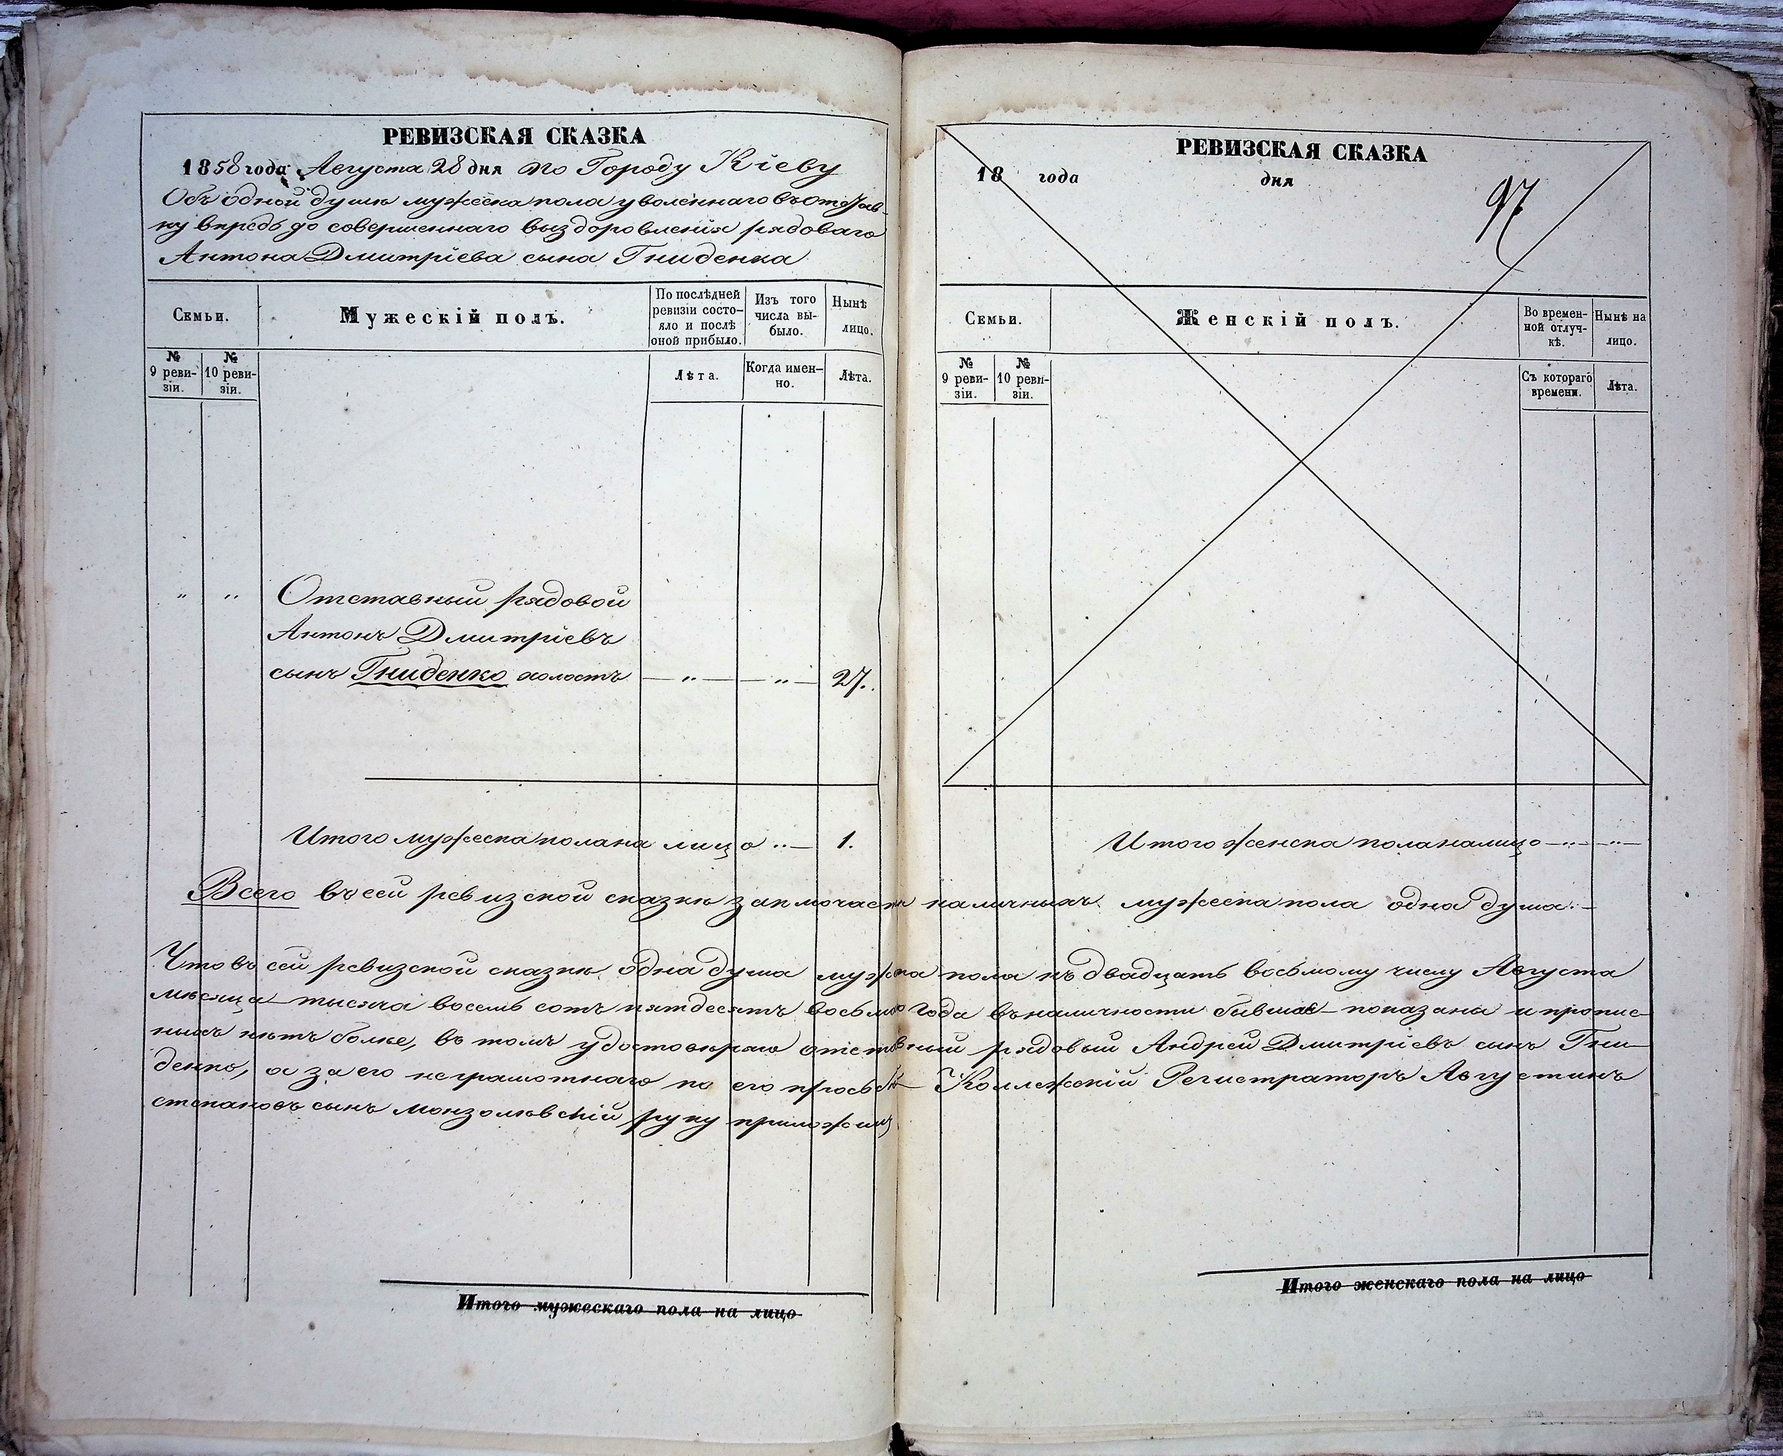 РЕВИЗСКАЯ СКАЗКА
1858 года Августа 28 дня по Городу Кіеву
Объ одной душѣ мужеска пола уволеннаго въ отстав-
ку впредь до совершеннаго выздоровленія рядоваго
Антона Дмитріева сына Гниденка
Семьи.
Мужескій полъ.
По послѣдней ревизіи состо-яло и послѣ оной прибыло.
Изъ того числа вы-было.
Нынѣ лицо.
№ 9 реви-зіи.
№ 10 реви-зіи.
Лѣта.
Когда имен-но.
Лѣта.
" " Отставный рядовой
Антонъ Дмитріевъ
сынъ Гниденко холостъ — " — — " — 27.
Итого мужеска пола на лицо " — 1.
РЕВИЗСКАЯ СКАЗКА
18 года дня
97
Семьи.
Женскій полъ.
Во времен-ной отлуч-кѣ.
Нынѣ на лицо.
№ 9 реви-зіи.
№ 10 реви-зіи.
Съ котораго времени.
Лѣта.
Итого женска пола на лицо — " — " —
Всего въ сей ревизской сказкѣ заключается наличныхъ мужеска пола одна душа. —
Что въ сей ревизской сказкѣ одна душа мужска пола къ двадцать восьмому числу Августа
мѣсяца тысяча восемь сотъ пятдесятъ восьмаго года въ наличности бывшая показана и пропис-
ныхъ нѣтъ болѣе, въ томъ удостовѣряю отставный рядовый Андрей Дмитріевъ сынъ Гни-
денко, а за его неграмотнаго по его просьбѣ Коллежскій Регистраторъ Августинъ
степановъ сынъ руку приложилъ
Итого мужескаго пола на лицо
Итого женскаго пола на лицо